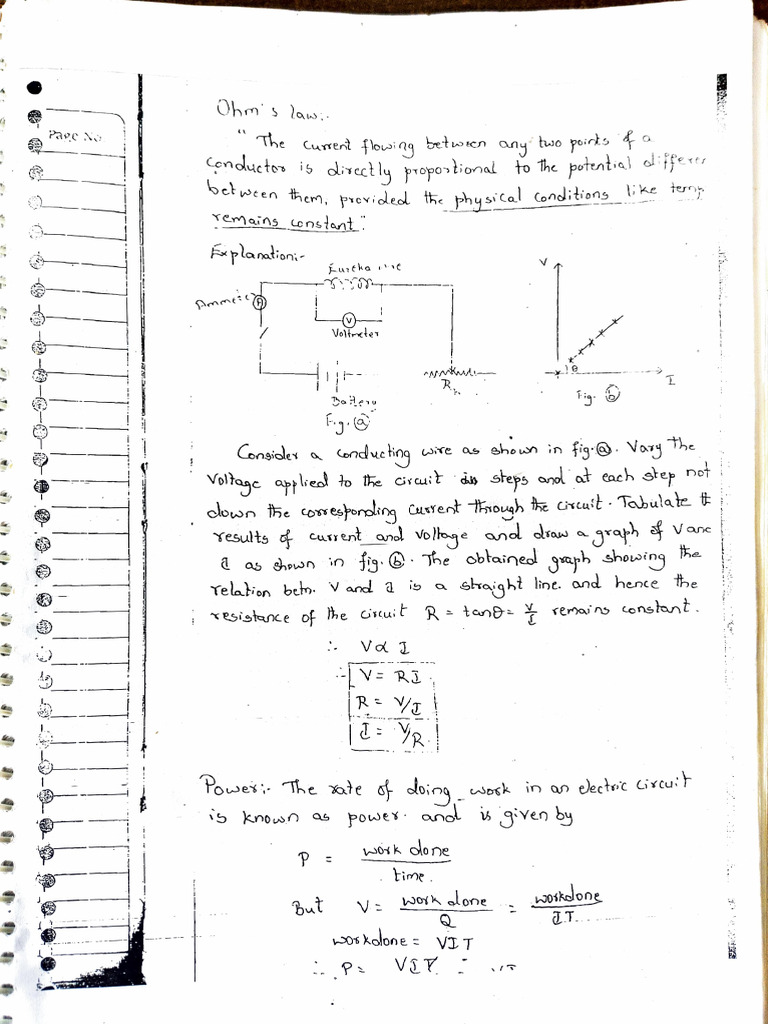 Page No
Ohm's law:-
"The current flowing between any two points of a
conductor is directly proportional to the potential differen
between them, provided the physical conditions like temp
remains constant".
Explanation:-
Eureka
Ammete
A
V
Voltmeter
Battery
Fig. (a)
R
V
θ
I
Fig. (b)
Consider a conducting wire as shown in fig.(a). Vary the
voltage applied to the circuit in steps and at each step not
down the corresponding current through the circuit. Tabulate
results of current and voltage and draw a graph of V and
I as shown in fig.(b). The obtained graph showing the
relation betn. V and I is a straight line. and hence the
resistance of the circuit R = tanθ = V/I remains constant.
∴ V∝ I
∴ V = RI
R = V/I
I = V/R
Power:- The rate of doing work in an electric circuit
is known as power. and is given by
P = work done / time.
But V = work done / Q = workdone / IT
workdone = VIT
∴ P = VIT